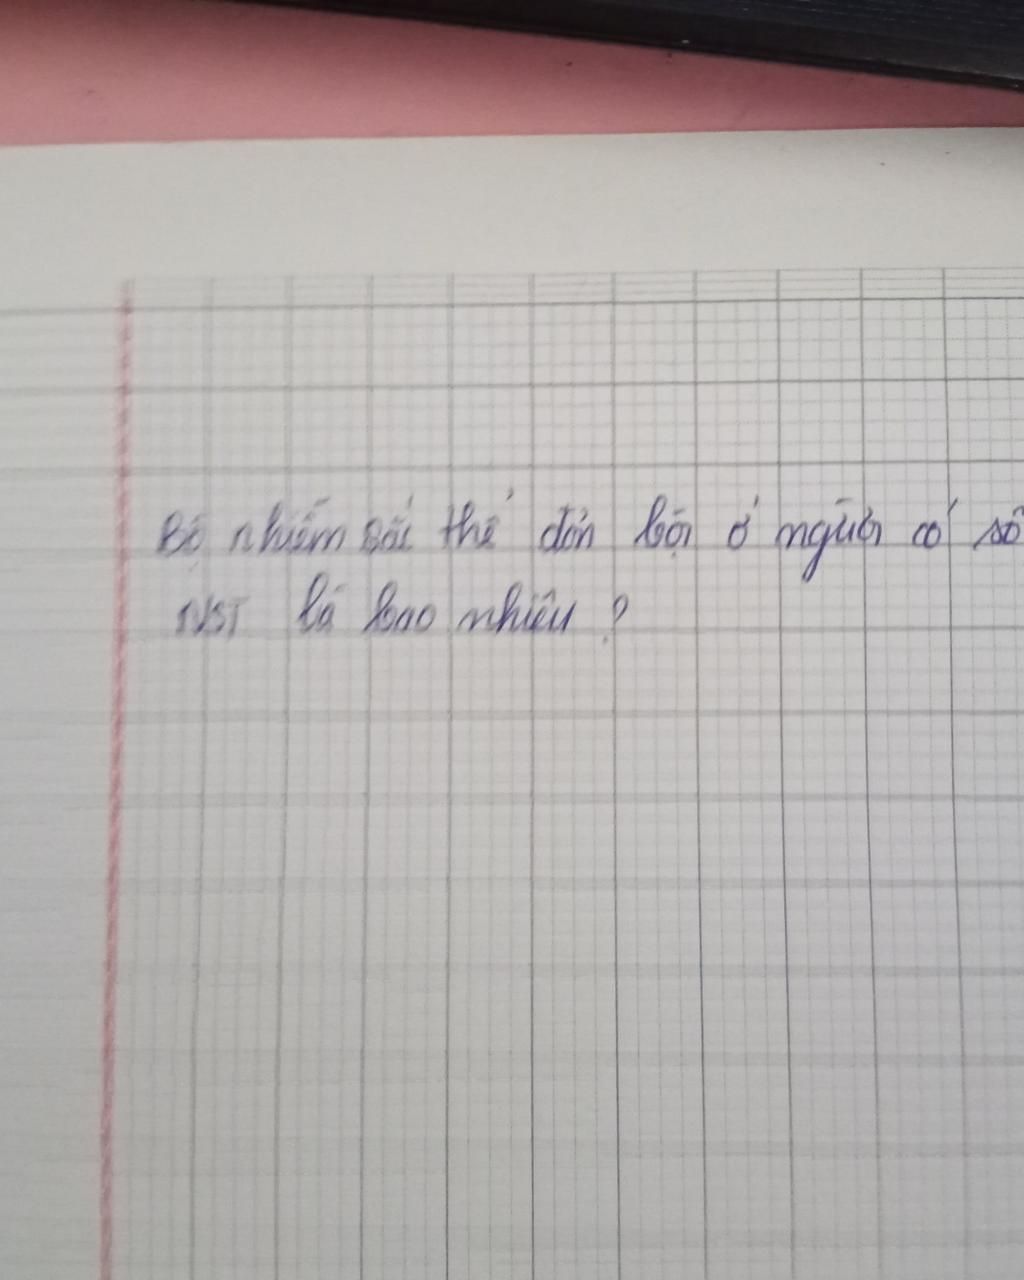 Bộ nhiễm sắc thể đơn bội ở người có số
NST là bao nhiêu ?